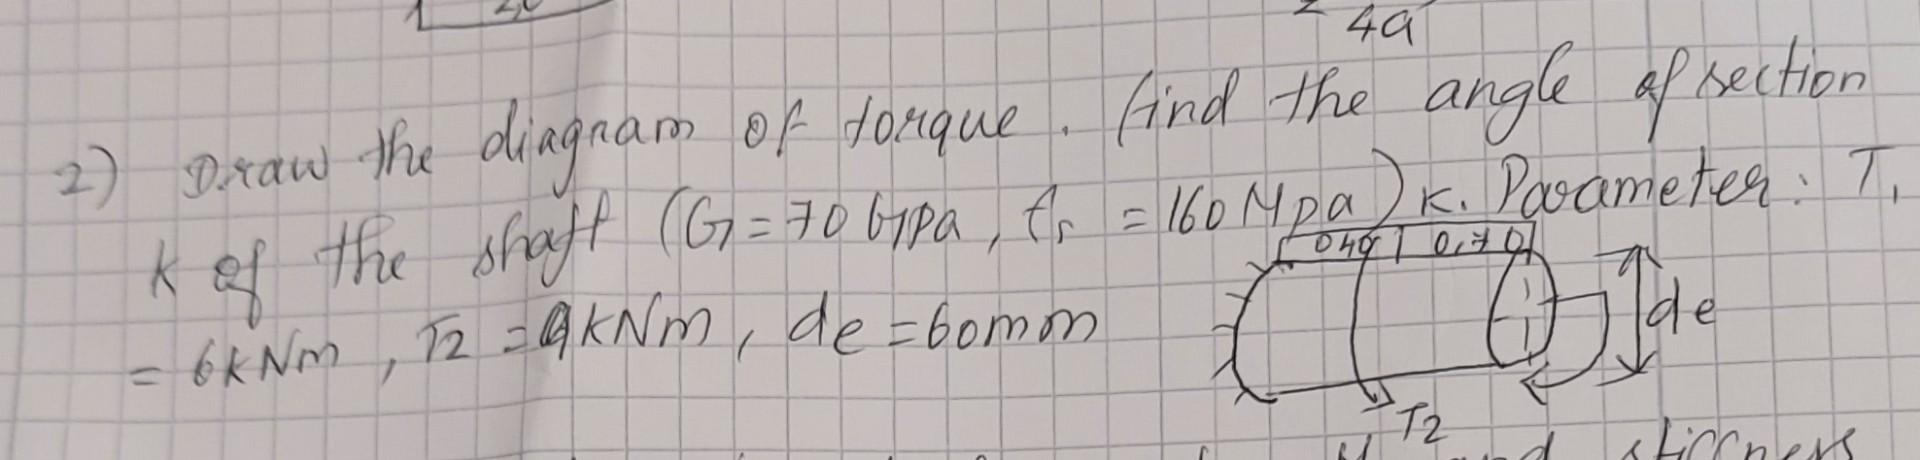 4a
2) Draw the diagram of torque. find the angle of section
K of the shaft (G=70 GPa, tr =160 MPa) K. Parameter: T1
= 6kNm, T2 = 9kNm, de =60mm
0,70
de
T2
and stiffness